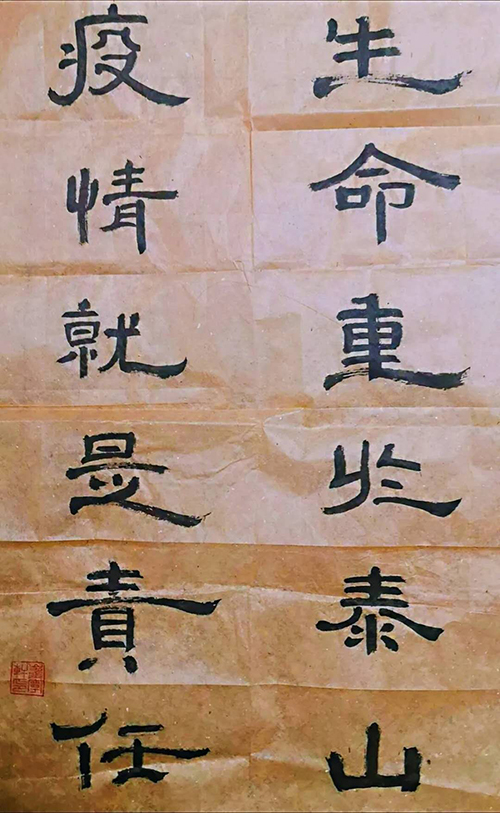 生命重於泰山
疫情就是責任